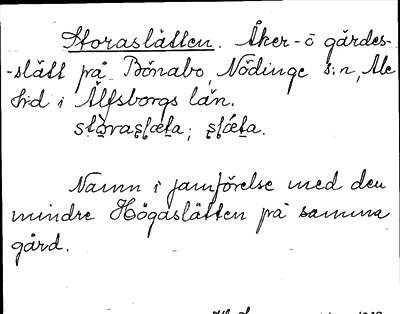 Storaslätten. Åker- o gärdes-
-slätt på Bönabo, Nödinge s:n, Ale
hd i Älfsborgs län.
Namn i jämförelse med den
mindre Högaslätten på samma
gård.